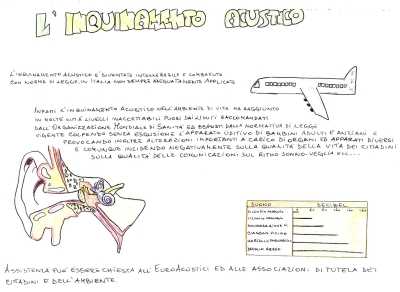 L'INQUINAMENTO ACUSTICO
L'INQUINAMENTO ACUSTICO E' DIVENTATO INTOLLERABILE E COMBATUTO
CON NORME DI LEGGE, IN ITALIA NON SEMPRE ADEGUATAMENTE APPLICATE
INFATI L'INQUINAMENTO ACUSTICO NELL'AMBIENTE DI VITA HA RAGGIUNTO
IN MOLTE CITTÀ LIVELLI INACCETTABILI FUORI DAI LIMITI RACCOMANDATI
DALL'ORGANIZZAZIONE MONDIALE DI SANITÀ ED EMANATI DALLA NORMATIVA DI LEGGE
VIGENTE COLPENDO SENZA ESCLUSIONE L'APPARATO UDITIVO DI BAMBINI ADULTI E ANZIANI E
PROVOCANDO INOLTRE ALTERAZIONI IMPORTANTI A CARICO DI ORGANI ED APPARATI DIVERSI
E COMUNQUE INCIDENDO NEGATIVAMENTE SULLA QUALITÀ DELLA VITA DEI CITTADINI
SULLA QUALITÀ DELLE COMUNICAZIONI SUL RITMO SONNO-VEGLIA ECC...
SUONO DECIBEL
ASSISTENZA PUO' ESSERE CHIESTA ALL'EUROACUSTICI ED ALLE ASSOCIAZIONI DI TUTELA DEI
CITTADINI E DELL'AMBIENTE.